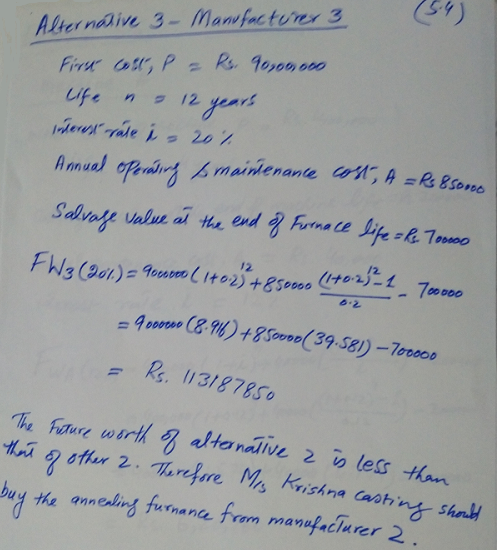 (5.4)
Alternative 3 - Manufacturer 3
First cost, P = Rs. 90,00,000
Life n = 12 years
Interest rate i = 20%
Annual operating & maintenance cost, A = Rs 850000
Salvage value at the end of Furnace life = Rs. 700000
FW3 (20%) = 9000000 (1+0.2)^12 + 850000 (1+0.2)^12 - 1 / 0.2 - 700000
= 9000000 (8.916) + 850000 (39.581) - 700000
= Rs. 113187850
The Future worth of alternative 2 is less than
that of other 2. Therefore M/s Krishna casting should
buy the annealing furnance from manufacturer 2.